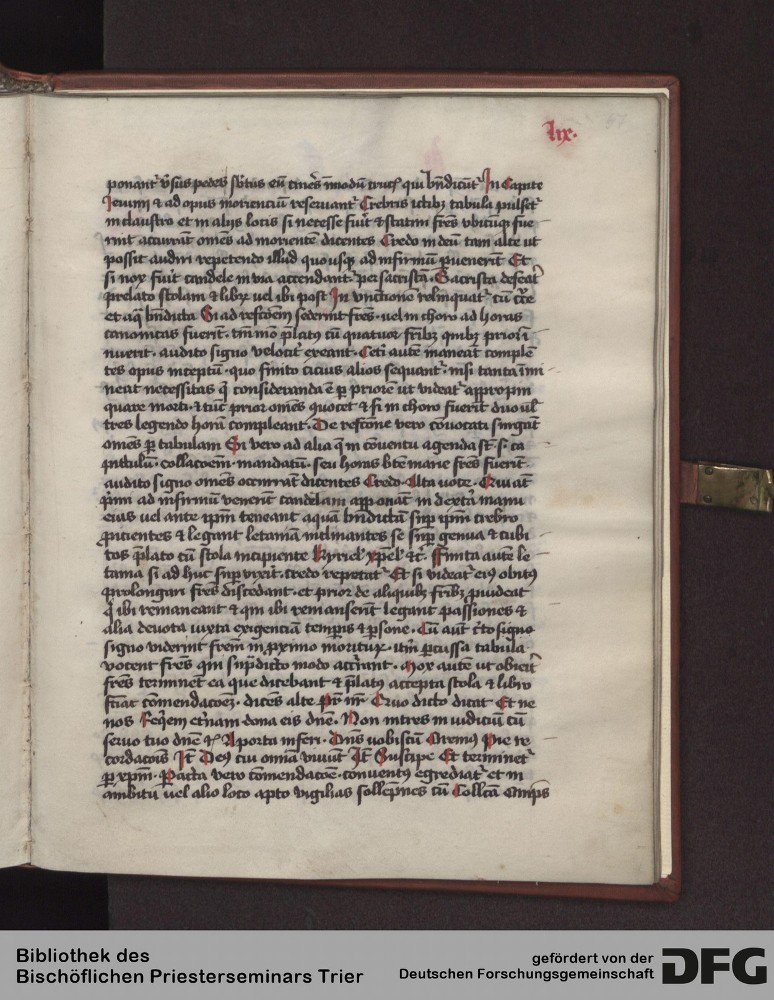 lix.
57
ponant᷒ v̄sus pedes sb̄tus eū cin̄es ī modū cruc᷒ qui bn̄dicūt᷒ In Capite
Jeiunij & ad opus moriencium reseruant᷒ Crebris ictibꝫ tabula pulset᷒
in claustro et in alijs locis si necesse fuīt & statim fr̄es vbicūqꝫ fue
rint accurrāt om̄es ad morientē dicentes Credo in deū tam alte ut
possit audiri repetendo illud quousqꝫ ad infirmū puenerīt Et
si nox fuīt candele in via accendant᷒ per sacristā. Sacrista deferat᷒
prelato stolam & librū uel ibi post In vnctione relinquat᷒ cū cͨce
et aq̄ bn̄dicta Si ad refcōem sederint fr̄es. uel in choro ad horas
canonicas fuerīt. tm̄mo p̄latꝰ cū quatuor fribꝫ quibꝫ prior i
nuerit. audito signo velocīt exeant. Cet̄i autē maneāt complē
tes opus inceptū. quo finito cicius alios sequant᷒. nisi tanta im̄i
neat necessitas q̄ consideranda ē ꝑ priorē ut videat᷒ appropin
quare morti. & tūc prior om̄es ꝯuocet & si in choro fuerīt duo ul̄
tres legendo horā compleant. De refcōne vero cōuocati surgāt
om̄es ꝑ tabulam Si vero ad alia q̄ in cōuentu agenda st̄. s. ca
pitulū. collacoēm. mandatū. seu horas bt̄e marie fr̄es fuerīt.
audito signo om̄es occurrāt dicentes Credo. Alta voce. Cum aūt
p̄rim ad infirmū venerīt candelam app̄onāt in dext̄a manu
eius uel ante ip̄m teneant aquā bn̄dictā sup̄ ip̄m crebro
ꝓicientes & legant letaniā inclinantes se sup̄ genua & cubi
tos p̄lato cū stola incipiente Kyriel̓ xp̄el̓ &c̄. Finita autē le
tania si ad huc sup̄vixīt. credo repetat᷒ Et si videat᷒ eiꝰ obitꝰ
ꝓlongari fr̄es discedant. et prior de aliquibꝫ frībꝫ ꝓuideat
q̄ ibi remaneant & qui ibi remanserīt legant passiones &
alia deuota iuxta exigenciā temp̄is & ꝑsone. Cū aūt c̄to signo
signo viderint frēm in ꝓximo moriturū. iterū ꝑcussa tabula
vocent fr̄es qui sup̄dicto modo accurrant. Mox autē ut obierīt
fr̄es terminēt ea que dicebant & p̄latꝰ accepta stola & libro
faciat cōmendacoēꝫ. dicēs alte Pr̄ nr̄. Quo dicto dicat Et ne
nos Req̄em et̄nam dona eis dn̄e. Non intres in iudiciū cū
seruo tuo dn̄e &c᷒ A porta inferi. Dn̄s vobiscū Oremꝰ Pie re
cordacoīs It̄ Deꝰ cui omīa viuūt It̄ Suscipe Et terminet᷒
ꝑ xp̄m. Pacta vero cōmendacoē. conuentꝰ egrediat᷒ et in
ambitū uel alio loco apto vigilias sollēpnes cū Collecta Omp̄s
Bibliothek des
Bischöflichen Priesterseminars Trier
gefördert von der
Deutschen Forschungsgemeinschaft
DFG